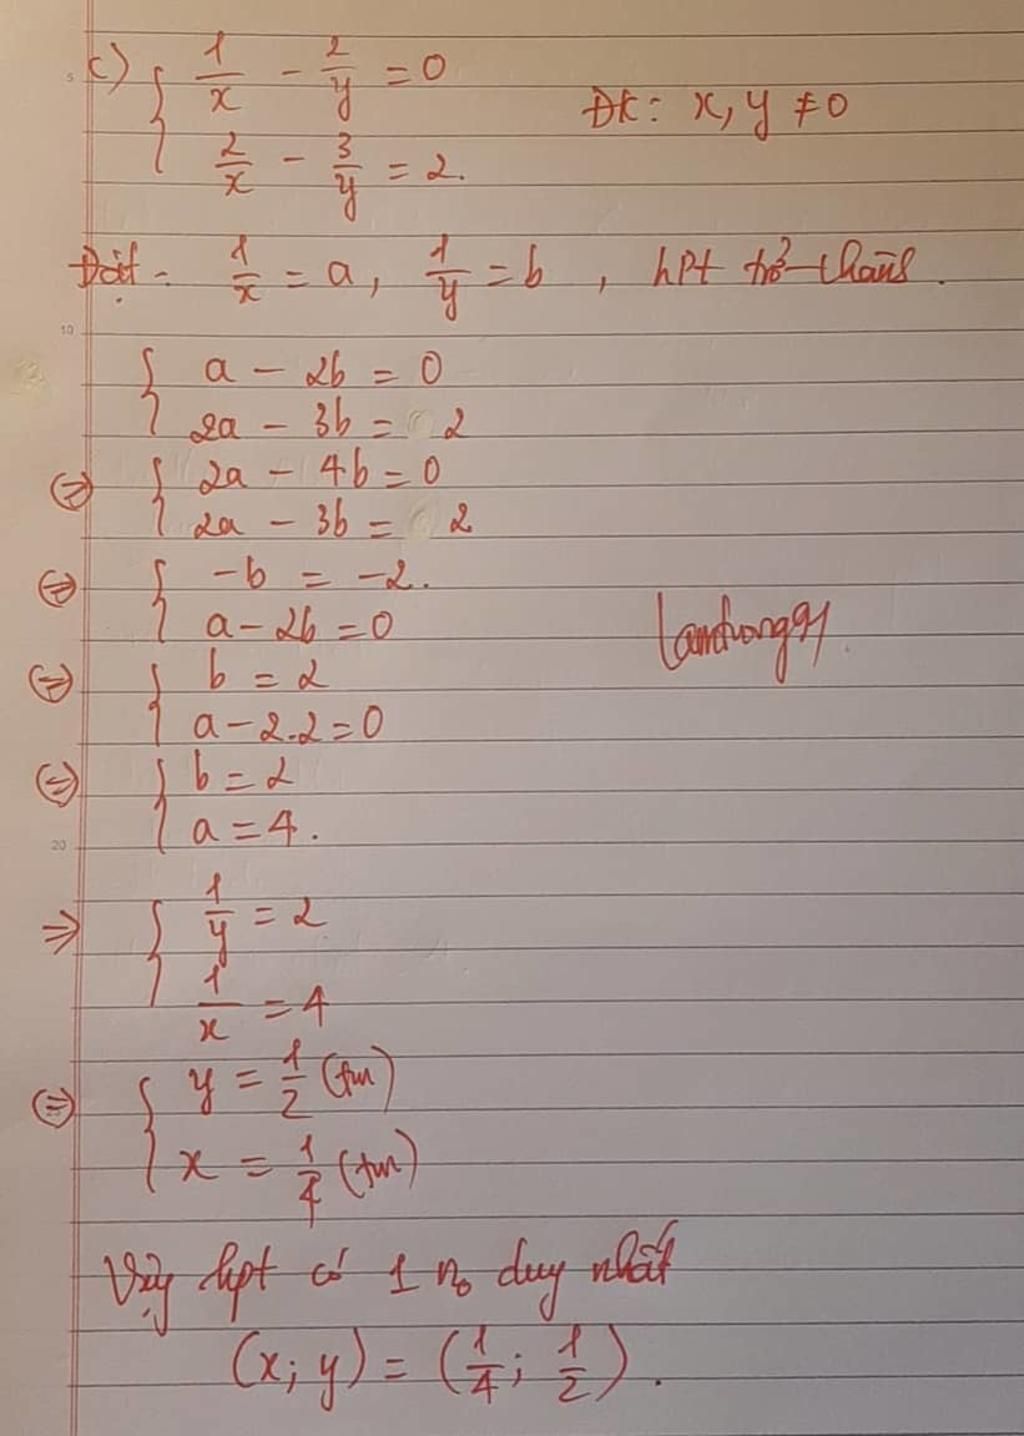 c) { 1/x - 2/y = 0
ĐK: x, y ≠ 0
2/x - 3/y = 2.
Đặt: 1/x = a, 1/y = b, hpt trở thành.
{ a - 2b = 0
2a - 3b = 2
⇔ { 2a - 4b = 0
2a - 3b = 2
⇔ { -b = -2.
a - 2b = 0
⇔ { b = 2
a - 2.2 = 0
⇔ { b = 2
a = 4.
⇒ { 1/y = 2
1/x = 4
⇔ { y = 1/2 (tm)
x = 1/4 (tm)
Vậy hpt có 1 no duy nhất
(x; y) = (1/4; 1/2).